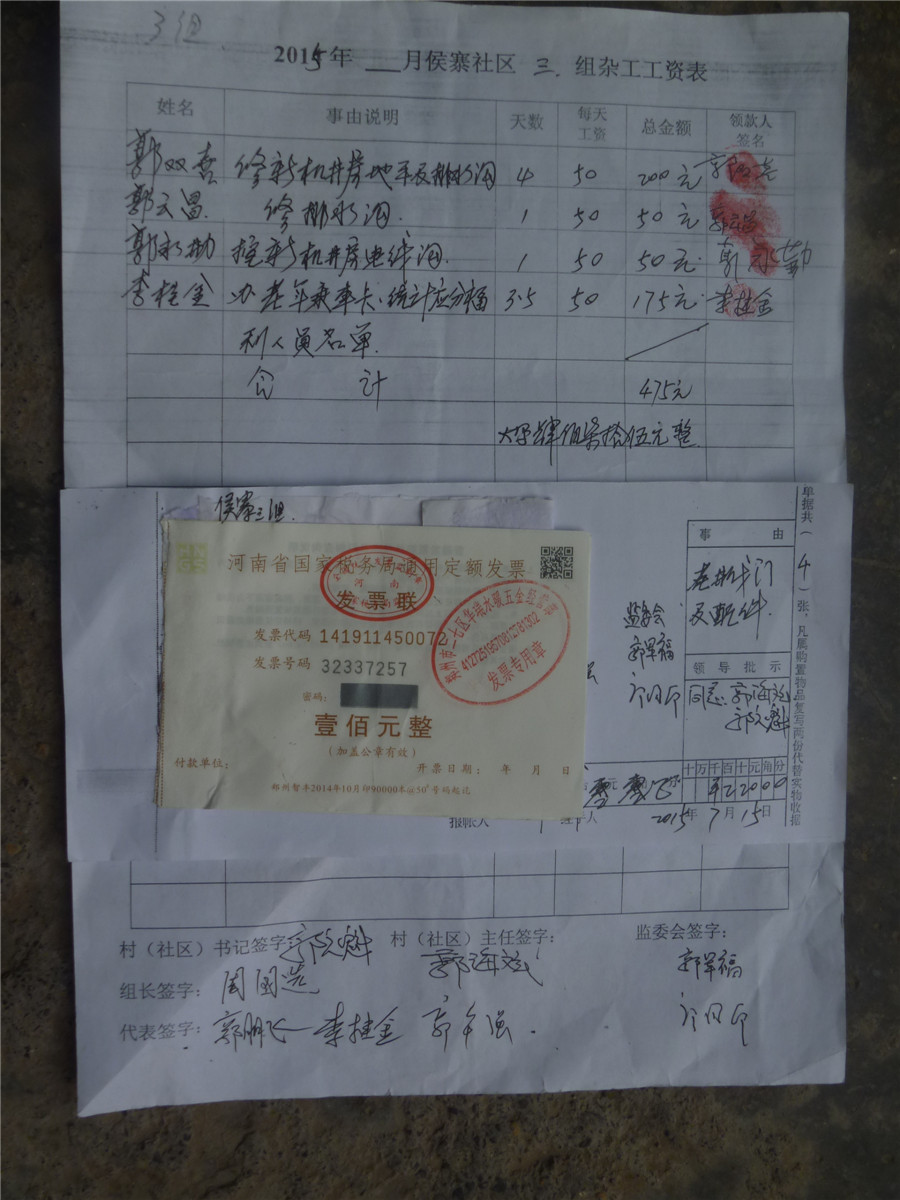 三组
2015年 月侯寨社区 三. 组杂工工资表
姓名 事由说明 天数 每天工资 总金额 领款人签名
郭双喜 修新机井房地平及排水沟 4 50 200元
郭云昌 修排水沟. 1 50 50元 郭云昌
郭永勤 挖新机井房电线沟. 1 50 50元. 郭永勤
李桂金 办老年乘车卡、统计应分福 3.5 50 175元. 李桂金
利人员名单.
合 计 475元
大写肆佰柒拾伍元整
侯寨三组.
河南省国家税务局通用定额发票
河南
发票联
发票代码 141911450072
发票号码 32337257
密码:
壹佰元整
(加盖公章有效)
付款单位: 开票日期: 年 月 日
郑州市二七区华瑞水暖五金经
发票专用章
事 由
及配件.
监委会
郭军福
领导批示
同意. 郭海斌
十万千百十元角分
报账人
2015年7月15日
单据共(4)张,凡属购置物品复写两份代替实物收据
村(社区)书记签字: 村(社区)主任签字: 监委会签字:
郭海斌 郭军福
组长签字: 周国选
代表签字: 郭鹏飞 李桂金